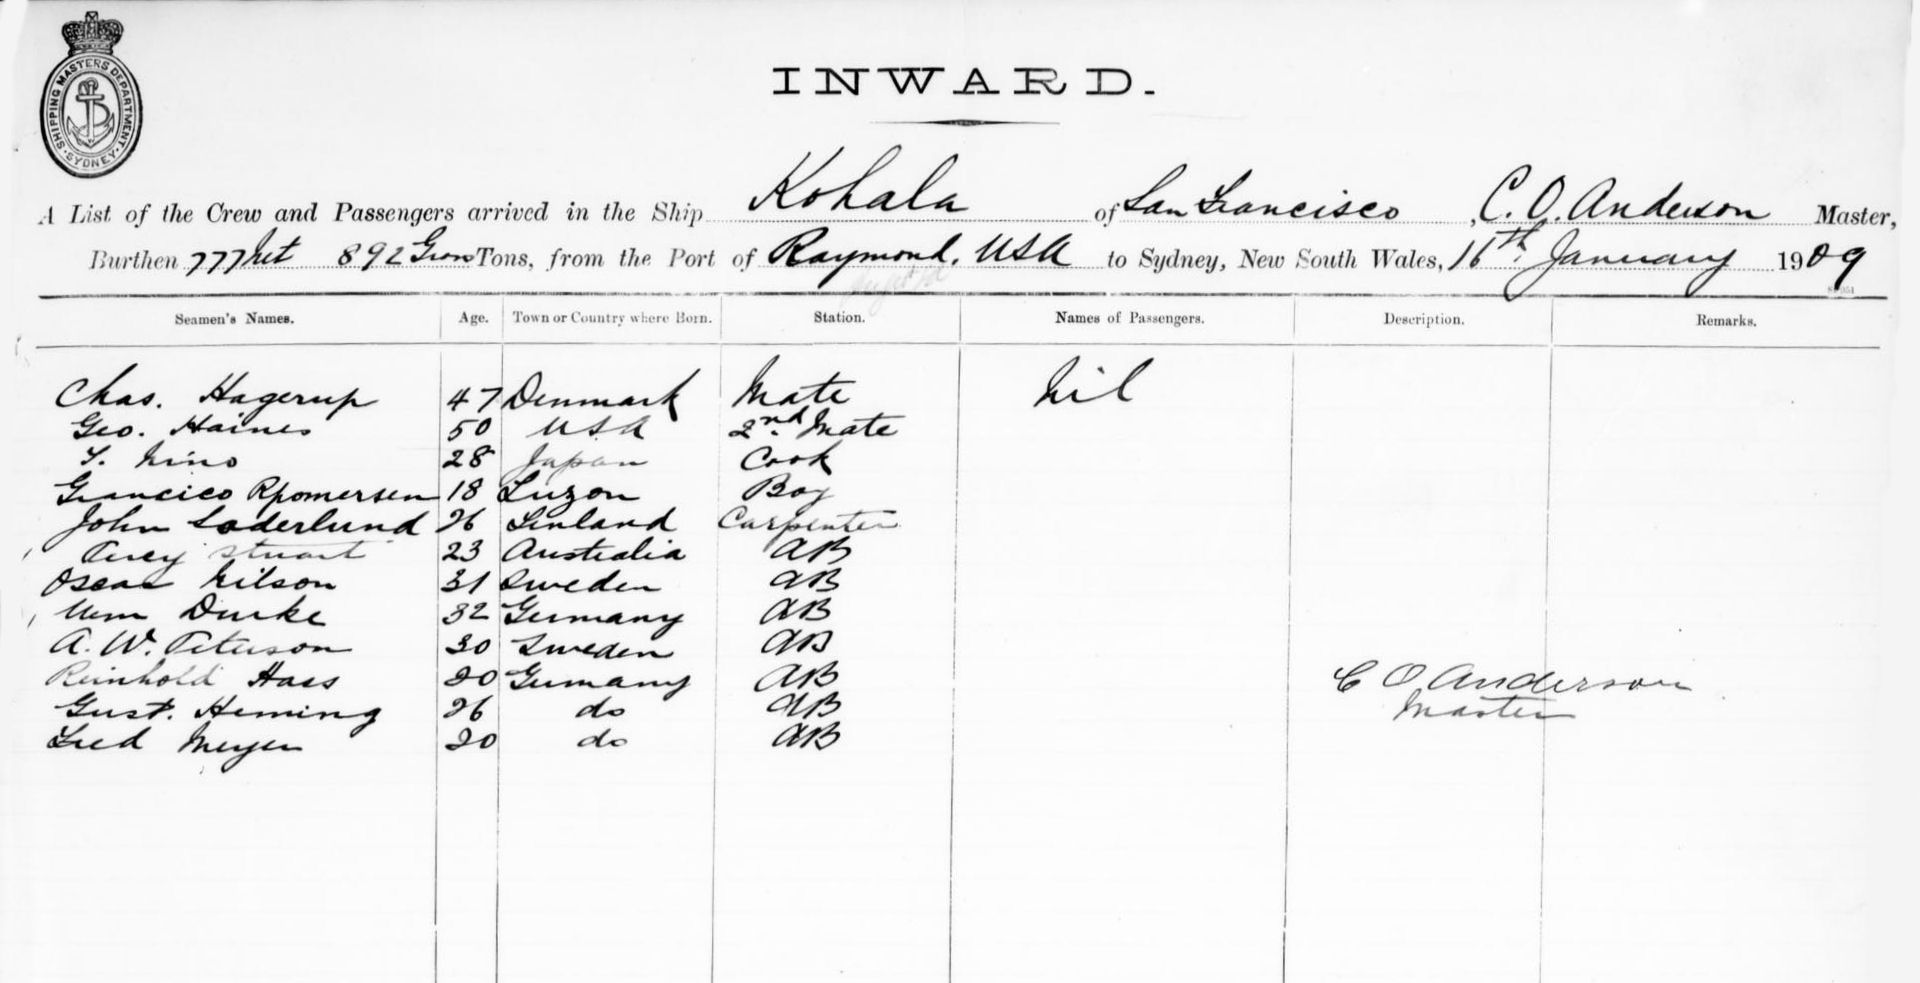 SHIPPING MASTERS DEPARTMENT. SYDNEY
INWARD.
A List of the Crew and Passengers arrived in the Ship Kohala of San Francisco, C. O. Anderson Master,
Burthen 777 Net 892 Gross Tons, from the Port of Raymond. USA to Sydney, New South Wales, 16th January 1909
Seamen's Names. Age. Town or Country where Born. Station. Names of Passengers. Description. Remarks.
Chas. Hagerup 47 Denmark Mate Nil
Geo. Haines 50 USA 2nd Mate
Nino 28 Japan Cook
18 Luzon Boy
John Soderlund 26 Finland Carpenter
Percy Stuart 23 Australia AB
Oscar Nilson 31 Sweden AB
Wm Durke 32 Germany AB
A. W. Peterson 30 Sweden AB
Reinhold Hass 20 Germany AB
C O Anderson
Gust. Heming 26 do AB
Master
Fred Meyer 20 do AB